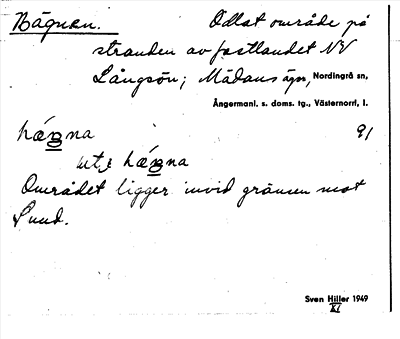 Hägnen. Odlat område på
stranden av fastlandet NV
Långsön; Mädans ägor, Nordingrå sn,
Ångermanl. s. doms. tg., Västernorrl. l.
91
Området ligger invid gränsen mot
Sund.
Sven Hiller 1949
XI